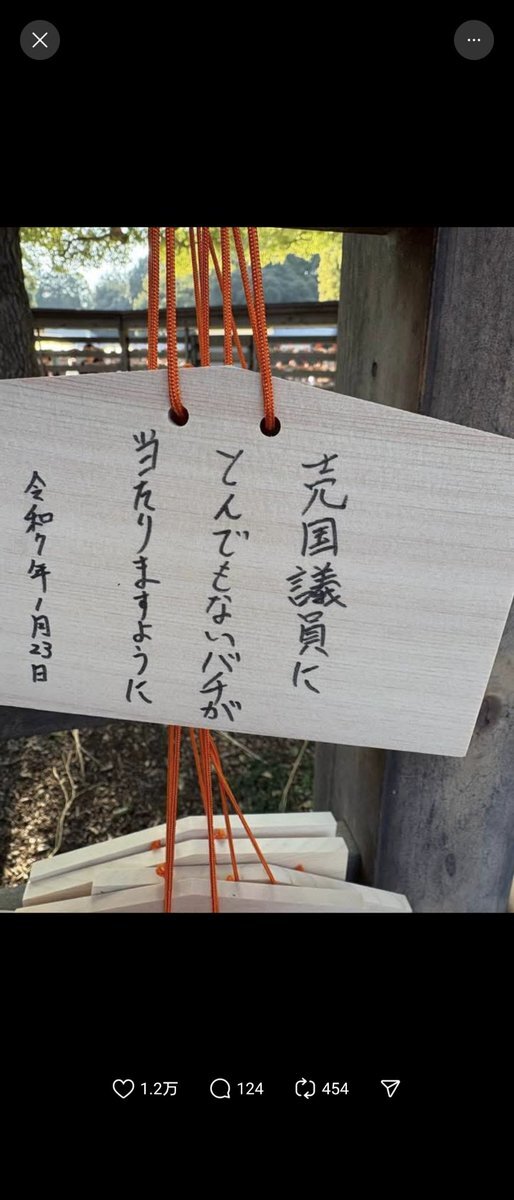 売国議員に
とんでもないバチが
当たりますように
令和7年1月23日
1.2万
124
454